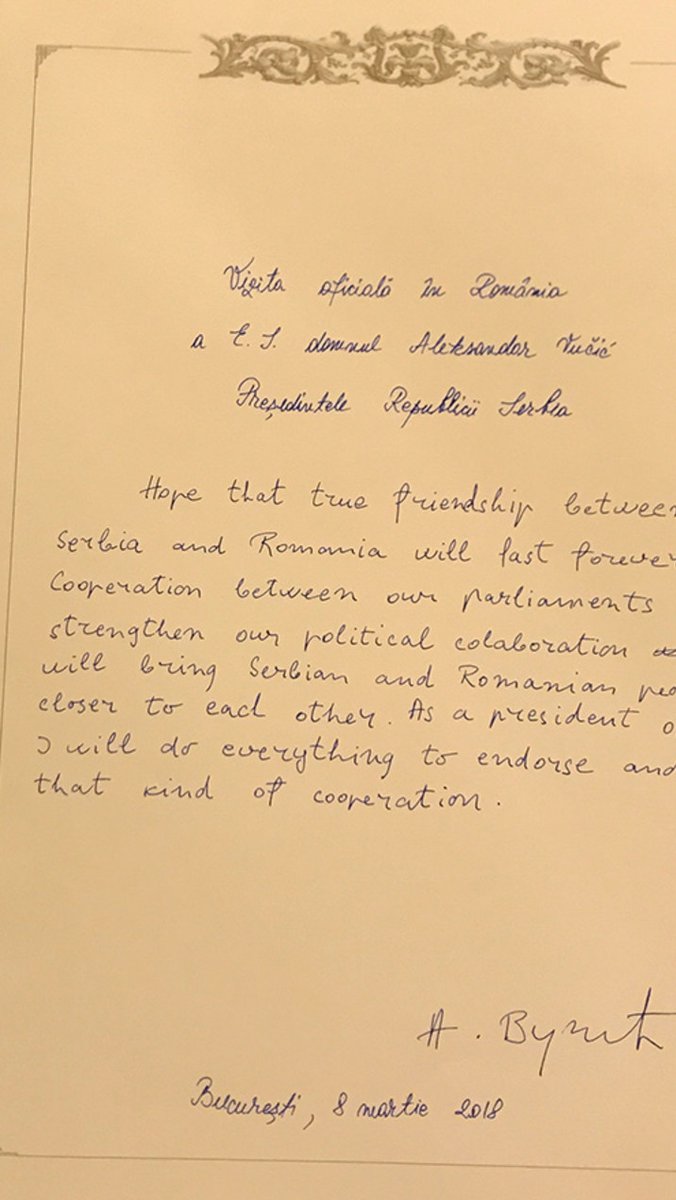 Vizita oficială în România
a E. S. domnul Aleksandar Vučić
Președintele Republicii Serbia
Hope that true friendship between
Serbia and Romania will last forever
Cooperation between our parliaments
strengthen our political colaboration
will bring Serbian and Romanian
closer to each other. As a president
I will do everything to endorse and
that kind of cooperation.
А. Вучић
București, 8 martie 2018